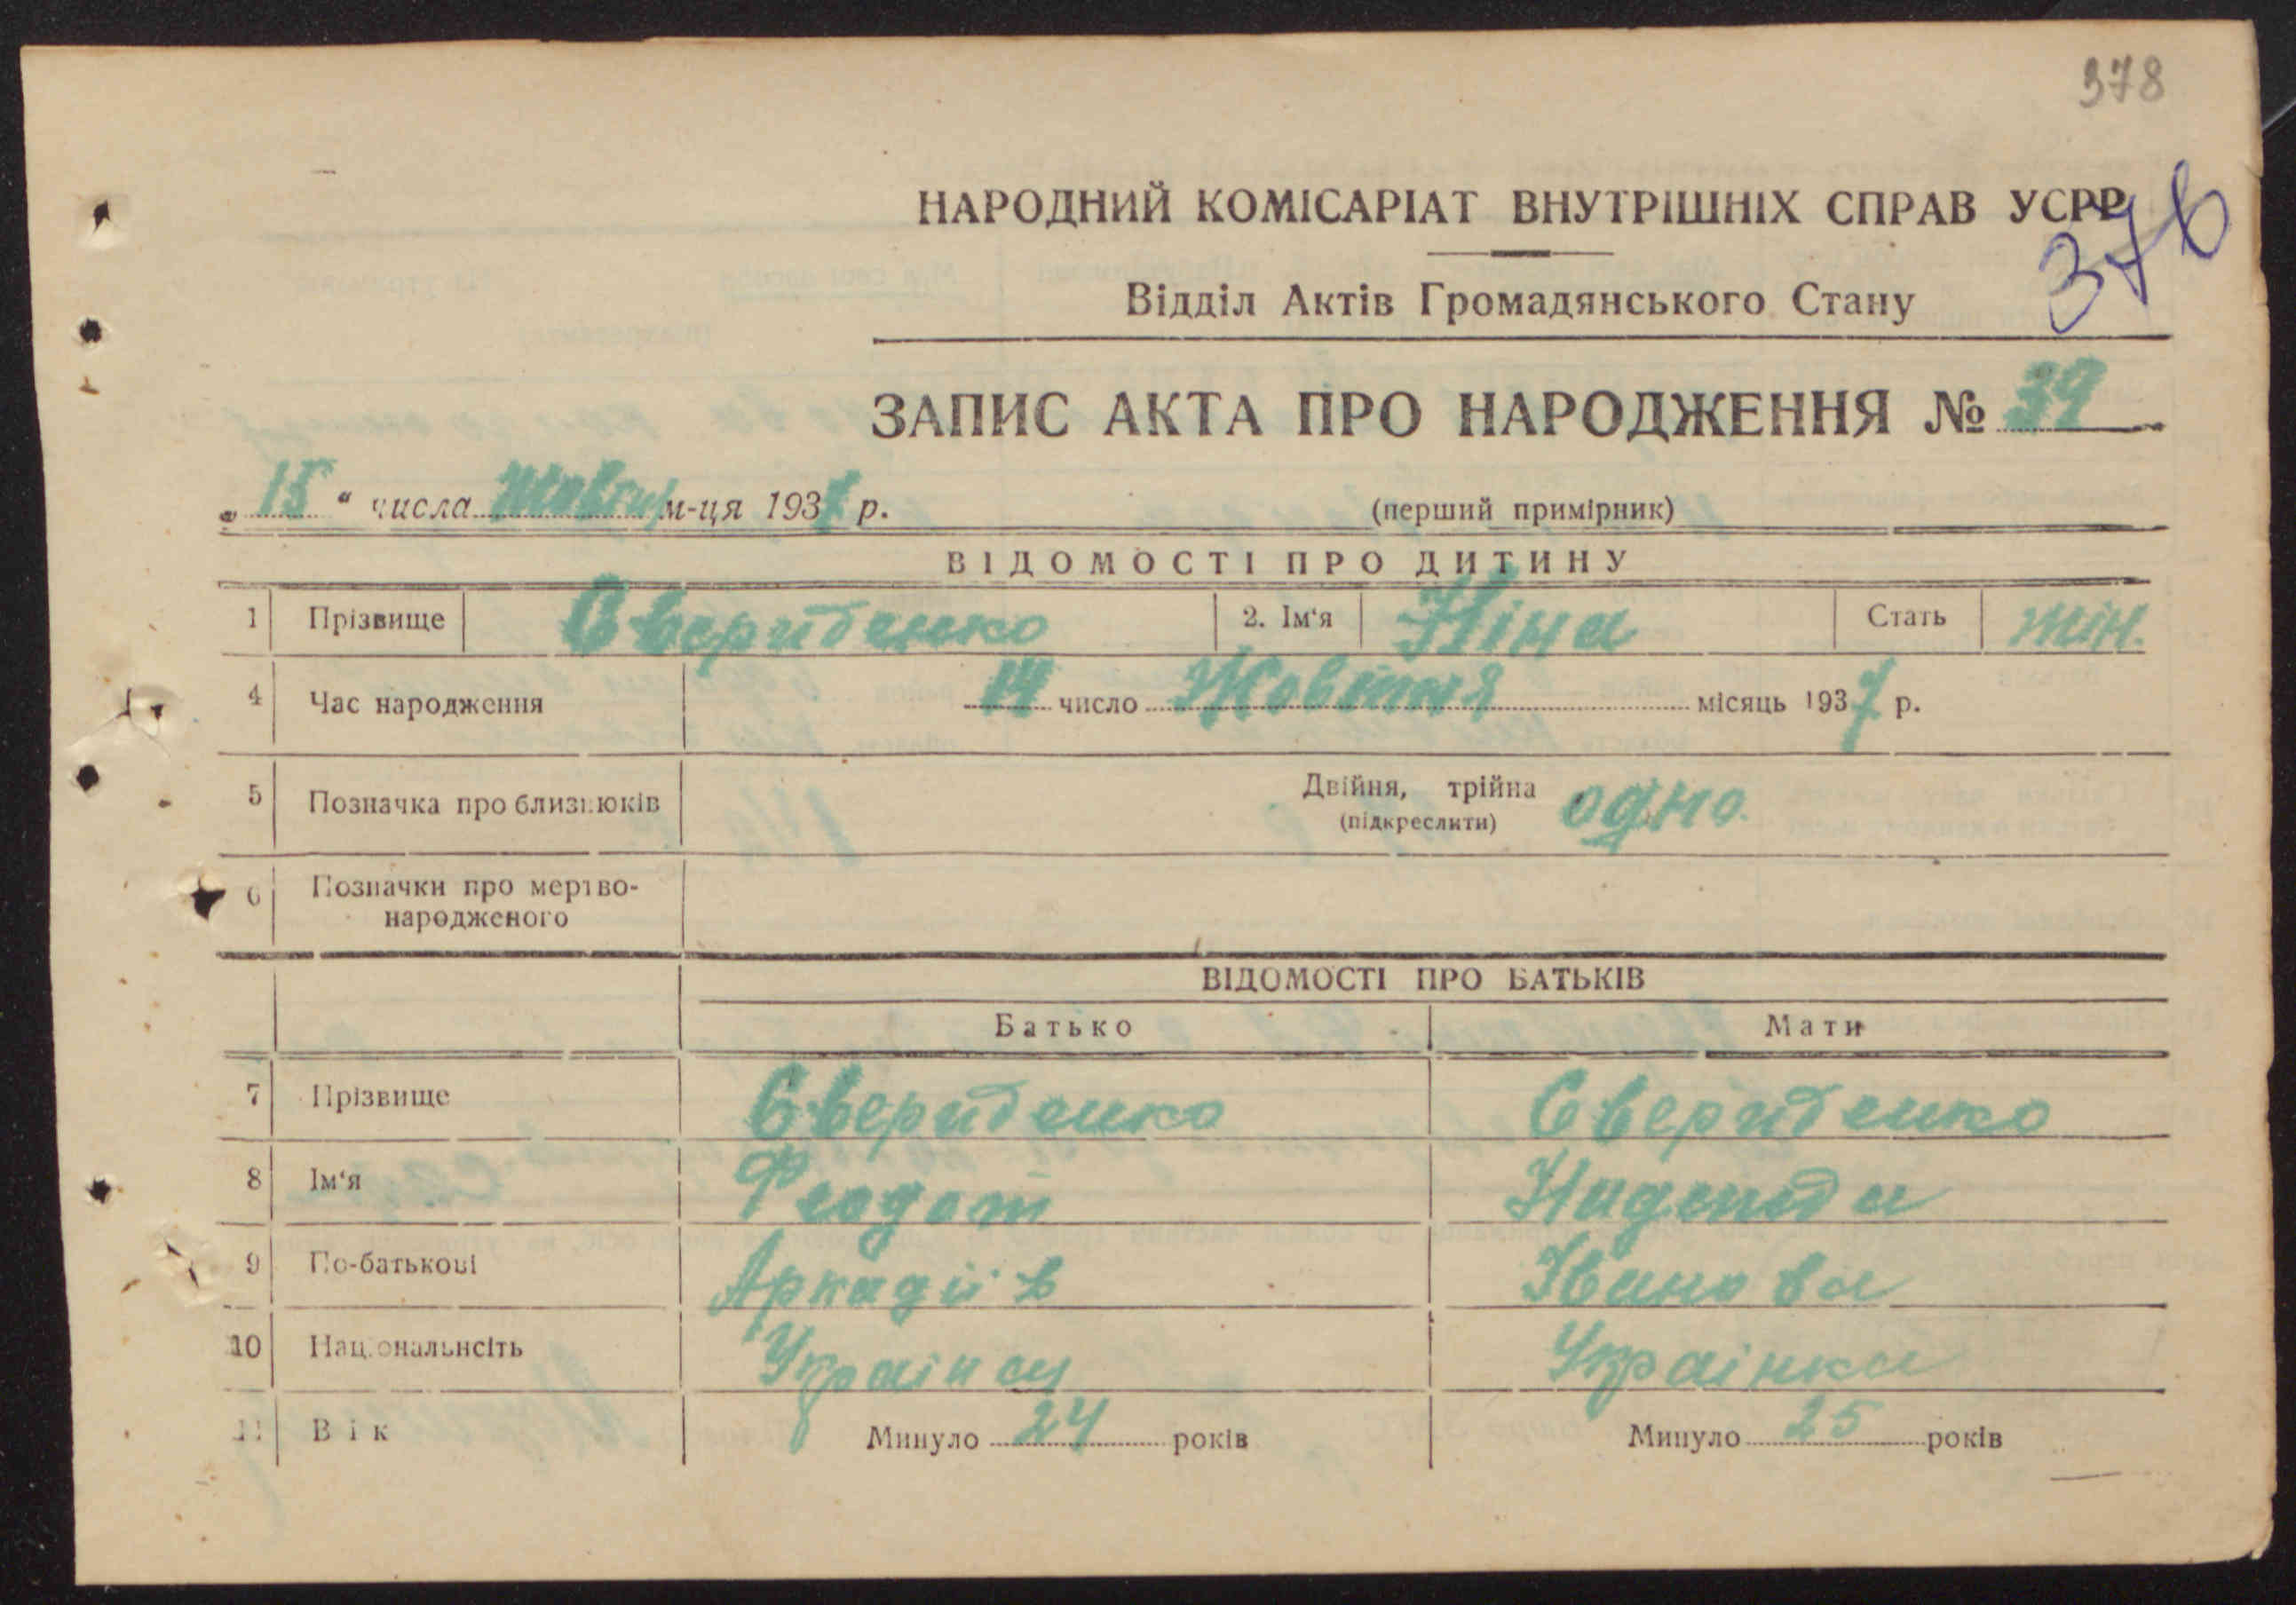 378
НАРОДНИЙ КОМІСАРІАТ ВНУТРІШНІХ СПРАВ УСРР
376
Відділ Актів Громадянського Стану
ЗАПИС АКТА ПРО НАРОДЖЕННЯ № 39
„ 15 “ числа Жовтн м-ця 1937 р. (перший примірник)
ВІДОМОСТІ ПРО ДИТИНУ
1 Прізвище Свериденко 2. Ім‘я Ніна Стать жін.
4 Час народження 14 число Жовтня місяць 1937 р.
5 Позначка про близнюків Двійня, трійна одно.
(підкреслити)
6 Позначки про мертво-
народженого
ВІДОМОСТІ ПРО БАТЬКІВ
Батько Мати
7 Прізвище Свериденко Свериденко
8 Ім‘я Феодот Надежда
9 По-батькові Аркадіїв Іванова
10 Національнсіть Украінец Украінка
11 Вік Минуло 24 років Минуло 25 років